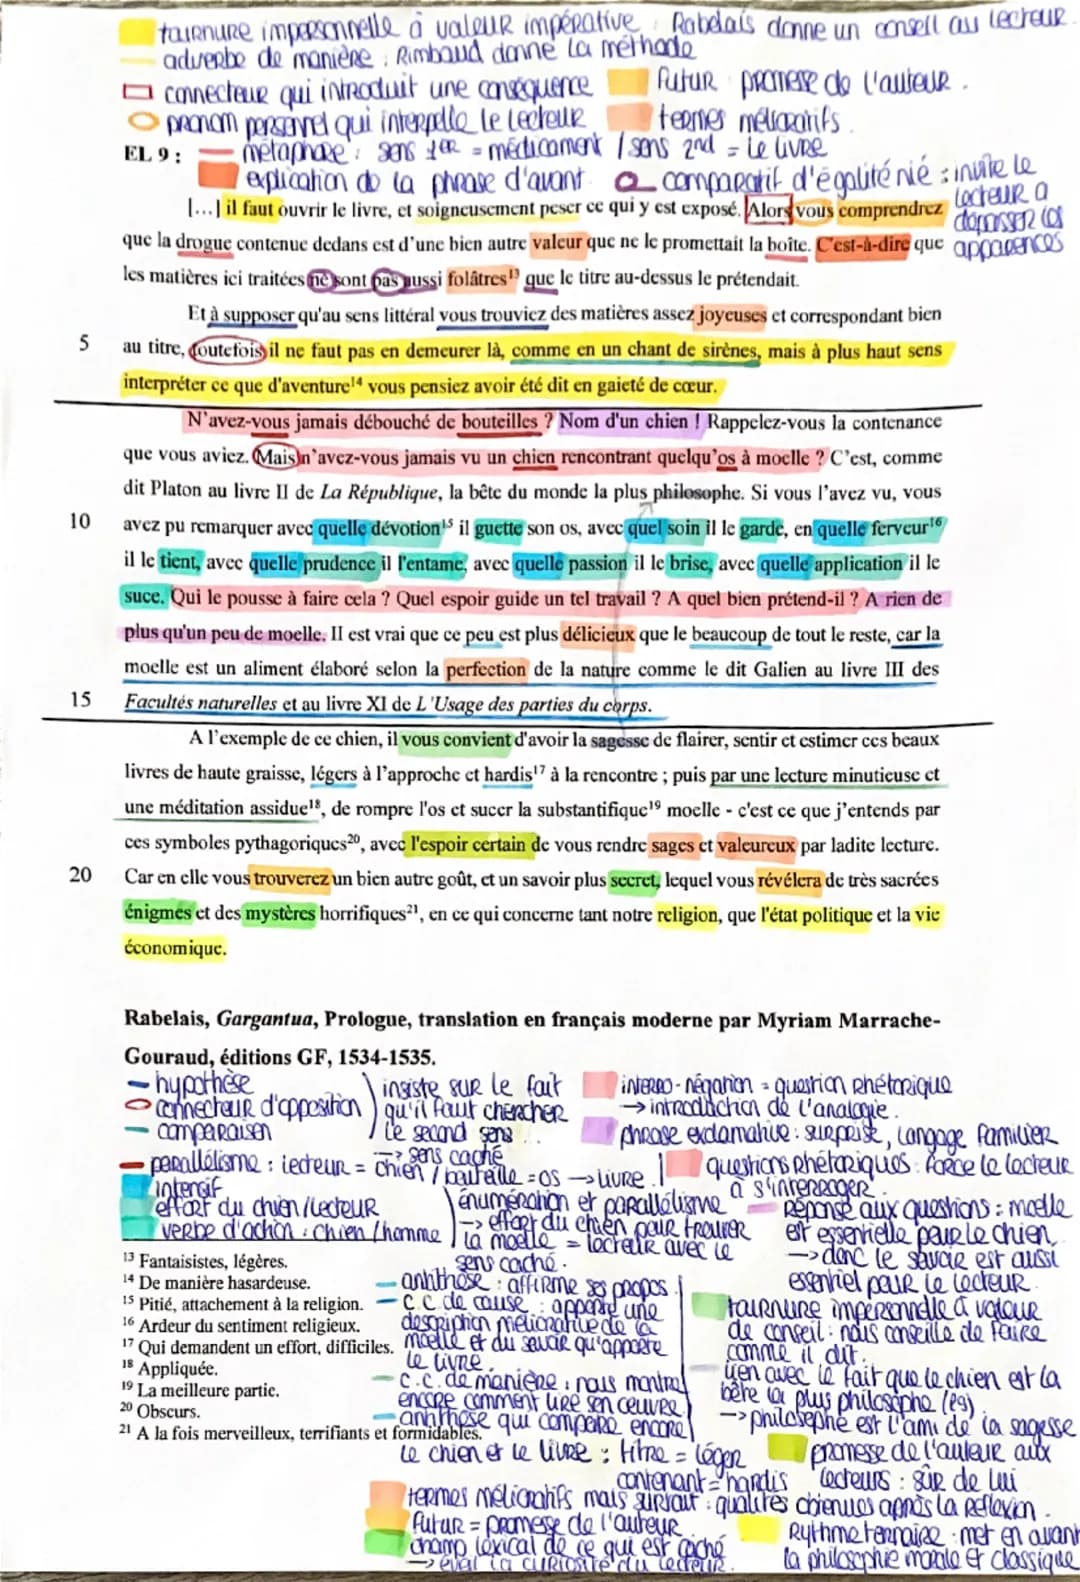 tournure impersonnelle à valeur impérative : Rabelais donne un conseil au lecteur.
adverbe de manière : Rimbaud donne la méthode
connecteur qui introduit une conséquence
Futur : promesse de l'auteur.
pronom personnel qui interpelle le lecteur
termes mélioratifs.
EL 9 :
métaphore : sens 1er = médicament / sens 2nd = le livre
explication de la phrase d'avant.
comparatif d'égalité nié : invite le
lecteur a
dépasser les
apparences
[...] il faut ouvrir le livre, et soigneusement peser ce qui y est exposé. Alors vous comprendrez
que la drogue contenue dedans est d'une bien autre valeur que ne le promettait la boîte. C'est-à-dire que
les matières ici traitées ne sont pas aussi folâtres¹³ que le titre au-dessus le prétendait.
Et à supposer qu'au sens littéral vous trouviez des matières assez joyeuses et correspondant bien
5 au titre, toutefois il ne faut pas en demeurer là, comme en un chant de sirènes, mais à plus haut sens
interpréter ce que d'aventure¹⁴ vous pensiez avoir été dit en gaieté de cœur.
N'avez-vous jamais débouché de bouteilles ? Nom d'un chien ! Rappelez-vous la contenance
que vous aviez. Mais n'avez-vous jamais vu un chien rencontrant quelqu'os à moelle ? C'est, comme
dit Platon au livre II de La République, la bête du monde la plus philosophe. Si vous l'avez vu, vous
10 avez pu remarquer avec quelle dévotion¹⁵ il guette son os, avec quel soin il le garde, en quelle ferveur¹⁶
il le tient, avec quelle prudence il l'entame, avec quelle passion il le brise, avec quelle application il le
suce. Qui le pousse à faire cela ? Quel espoir guide un tel travail ? A quel bien prétend-il ? A rien de
plus qu'un peu de moelle. Il est vrai que ce peu est plus délicieux que le beaucoup de tout le reste, car la
moelle est un aliment élaboré selon la perfection de la nature comme le dit Galien au livre III des
15 Facultés naturelles et au livre XI de L'Usage des parties du corps.
A l'exemple de ce chien, il vous convient d'avoir la sagesse de flairer, sentir et estimer ces beaux
livres de haute graisse, légers à l'approche et hardis¹⁷ à la rencontre ; puis par une lecture minutieuse et
une méditation assidue¹⁸, de rompre l'os et sucer la substantifique¹⁹ moelle - c'est ce que j'entends par
ces symboles pythagoriques²⁰, avec l'espoir certain de vous rendre sages et valeureux par ladite lecture.
20 Car en elle vous trouverez un bien autre goût, et un savoir plus secret, lequel vous révélera de très sacrées
énigmes et des mystères horrifiques²¹, en ce qui concerne tant notre religion, que l'état politique et la vie
économique.
Rabelais, Gargantua, Prologue, translation en français moderne par Myriam Marrache-
Gouraud, éditions GF, 1534-1535.
hypothèse
connecteur d'opposition
comparaison
insiste sur le fait
qu'il faut chercher
le second sens
→ sens caché
parallélisme : lecteur = chien / bouteille = os → livre.
intensif
effort du chien/lecteur
verbe d'action : chien/homme
énumération et parallélisme
→ effort du chien pour trouver
la moelle = lecteur avec le
sens caché.
interro-négation = question rhétorique
→ introduction de l'analogie.
phrase exclamative : surprise, langage familier
questions rhétoriques : force le lecteur
à s'interroger.
Réponse aux questions : moelle
est essentielle pour le chien,
→ donc le savoir est aussi
essentiel pour le lecteur.
¹³ Fantaisistes, légères.
¹⁴ De manière hasardeuse.
¹⁵ Pitié, attachement à la religion.
¹⁶ Ardeur du sentiment religieux.
¹⁷ Qui demandent un effort, difficiles.
¹⁸ Appliquée.
¹⁹ La meilleure partie.
²⁰ Obscurs.
²¹ A la fois merveilleux, terrifiants et formidables.
antithèse : affirme ses propos.
c.c. de cause : apporte une
description méliorative de la
moelle et du savoir qu'apporte
le livre.
c.c. de manière : nous montre
encore comment lire son œuvre.
antithèse qui compare encore
le chien et le livre : titre = léger
contenant = hardis
tournure impersonnelle à valeur
de conseil : nous conseille de faire
comme il dit.
lien avec le fait que le chien est la
bête la plus philosophe (l9)
→ philosophe est l'ami de la sagesse
promesse de l'auteur aux
lecteurs : sûr de lui
termes mélioratifs mais surtout : qualités obtenues après la réflexion.
futur = promesse de l'auteur
champ lexical de ce qui est caché
→ éveil la curiosité du lecteur.
Rythme ternaire : met en avant
la philosophie morale et classique